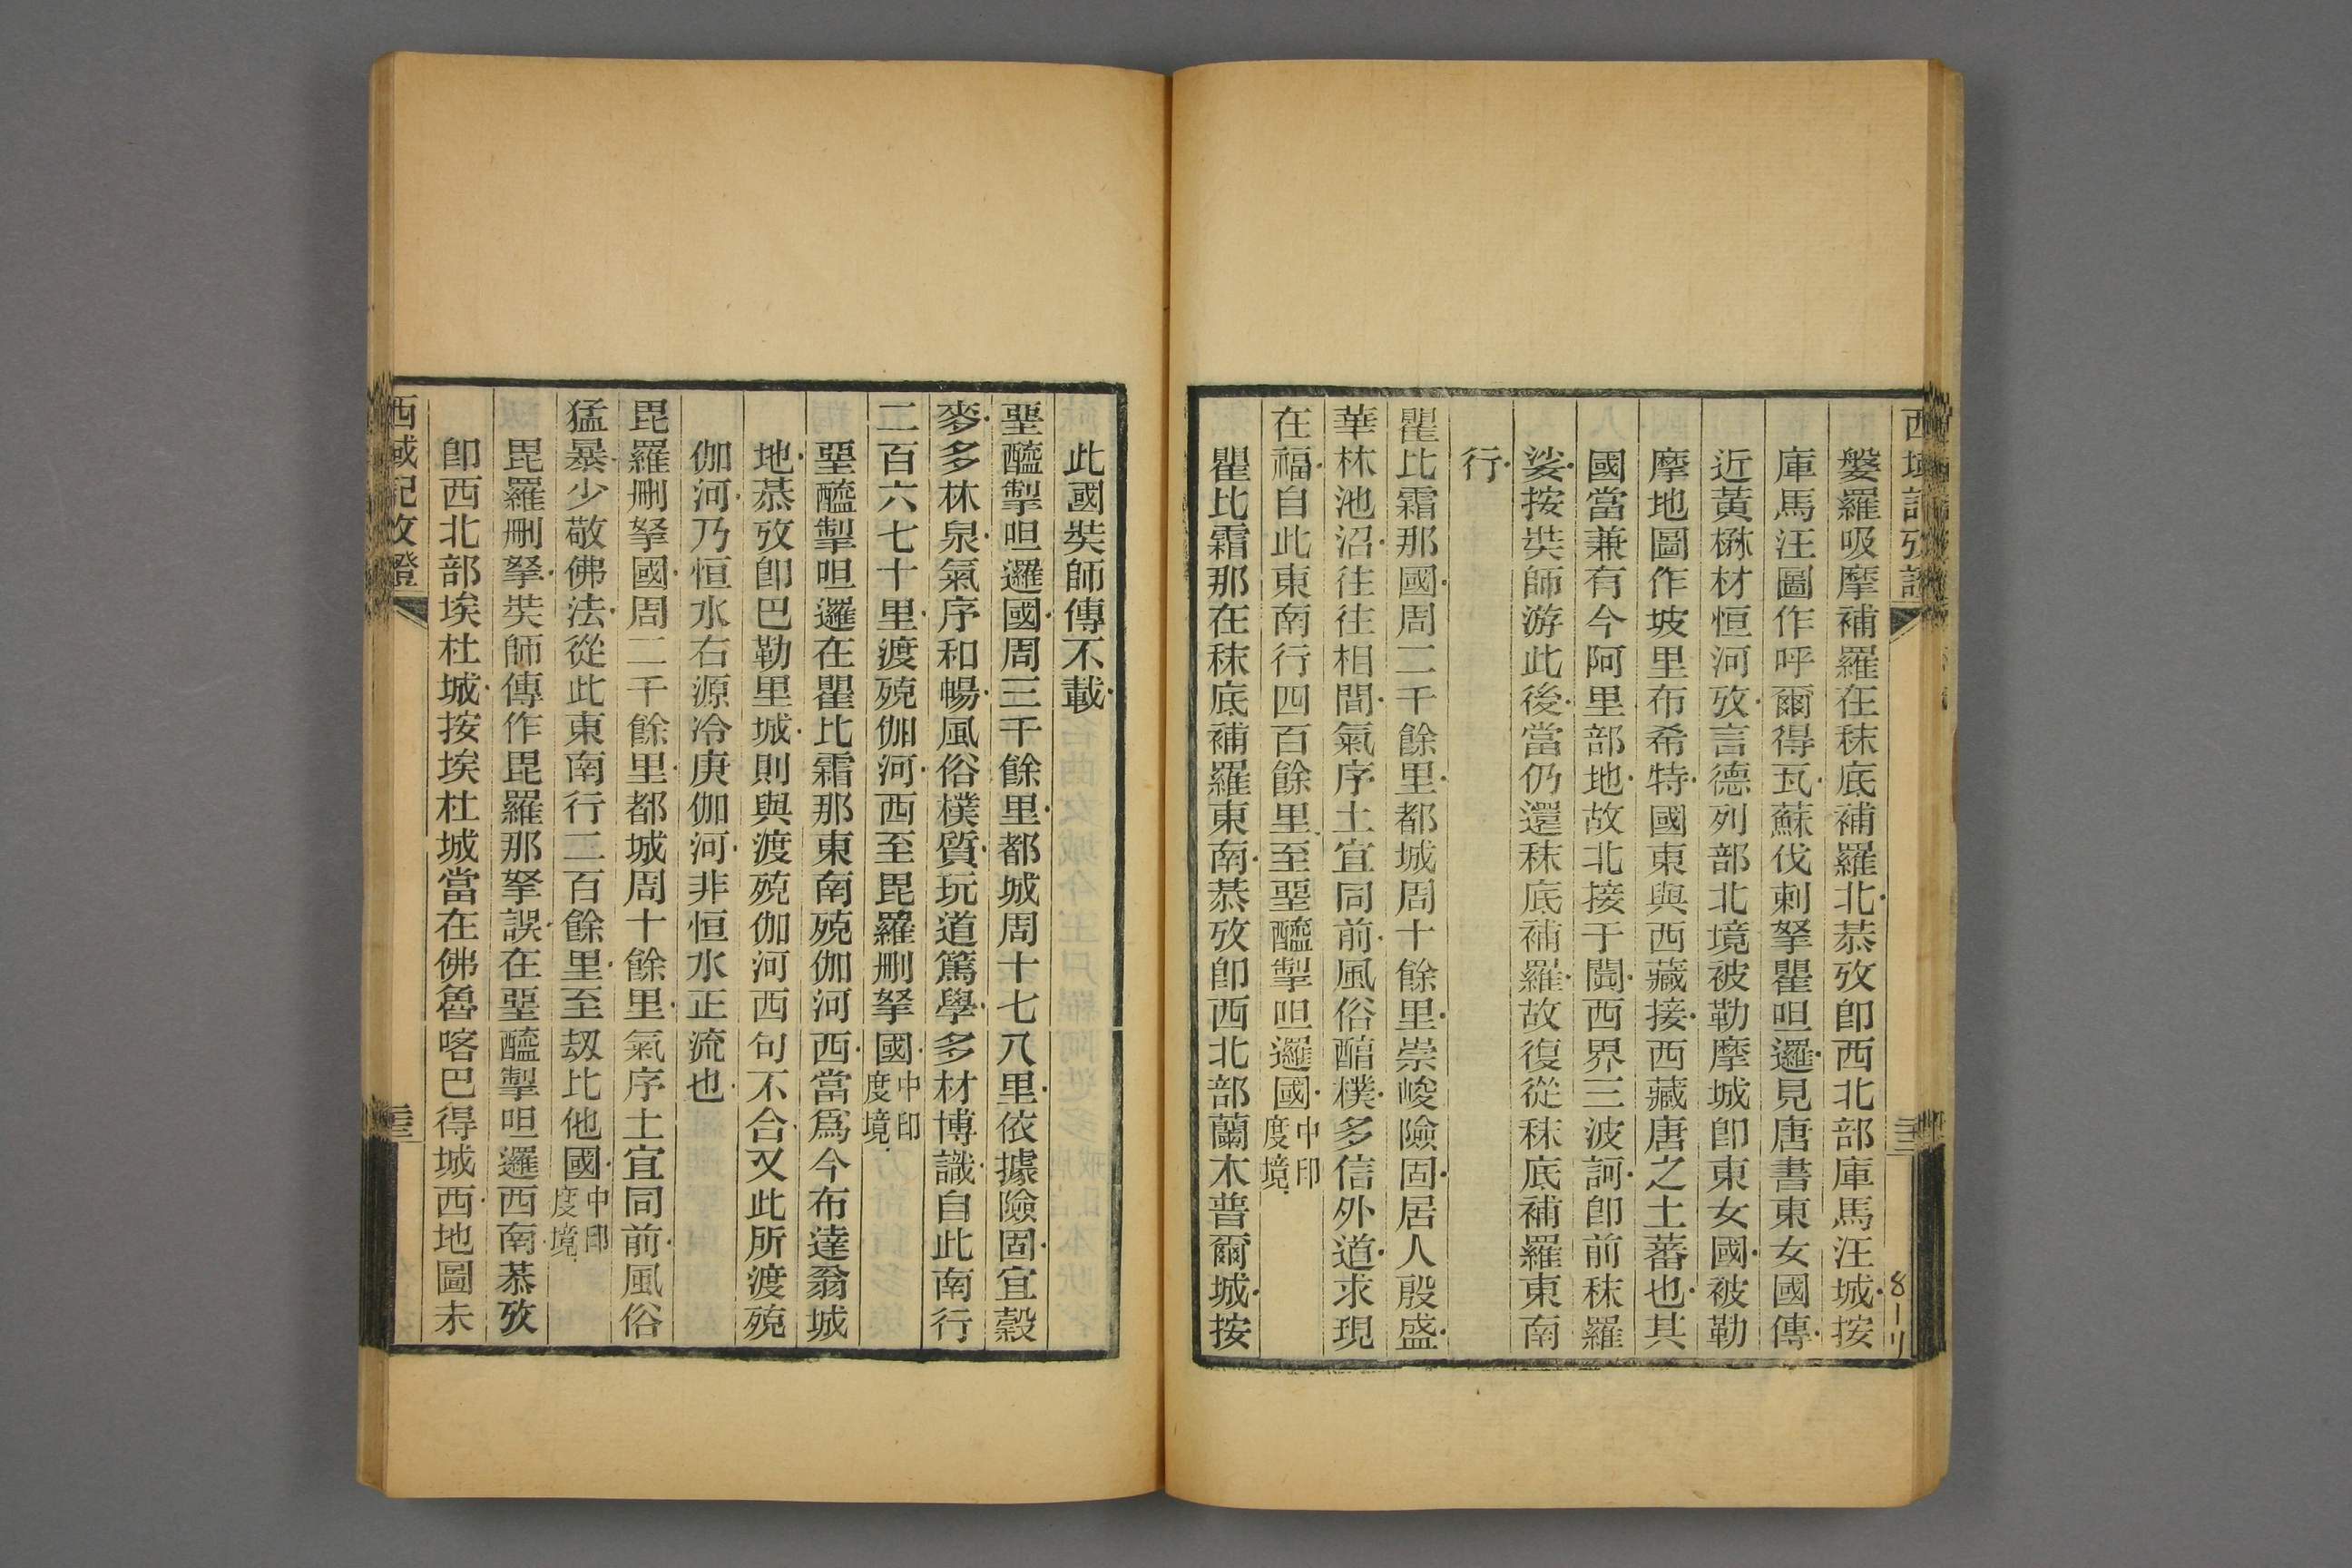 西域記攷證
婜羅吸摩補羅在秣底補羅北恭攷卽西北部庫馬汪城按
庫馬汪圖作呼爾得瓦蘇伐剌拏瞿呾邏見唐書東女國傳
近黃楙材恒河攷言德列部北境被勒摩城卽東女國被勒
摩地圖作坡里布希特國東與西藏接西藏唐之土蕃也其
國當兼有今阿里部地故北接于闐西界三波訶卽前秣羅
娑按奘師游此後當仍還秣底補羅故復從秣底補羅東南
行
瞿比霜那國周二千餘里都城周十餘里崇峻險固居人殷盛
華林池沼往往相間氣序土宜同前風俗醕樸多信外道求現
在福自此東南行四百餘里至堊醯掣呾邏國中印度境
瞿比霜那在秣底補羅東南恭攷卽西北部蘭木普爾城按
三三
8-11
此國奘師傳不載
堊醯掣呾邏國周三千餘里都城周十七八里依據險固宜穀
麥多林泉氣序和暢風俗樸質玩道篤學多材博識自此南行
二百六七十里渡殑伽河西至毘羅刪拏國中印度境
堊醯掣呾邏在瞿比霜那東南殑伽河西當爲今布達翁城
地恭攷卽巴勒里城則與渡殑伽河西句不合又此所渡殑
伽河乃恒水右源冷庚伽河非恒水正流也
毘羅刪拏國周二千餘里都城周十餘里氣序土宜同前風俗
猛暴少敬佛法從此東南行二百餘里至刼比他國中印度境
毘羅刪拏奘師傳作毘羅那拏誤在堊醯掣呾邏西南恭攷
卽西北部埃杜城按埃杜城當在佛魯喀巴得城西地圖未
西域記攷證